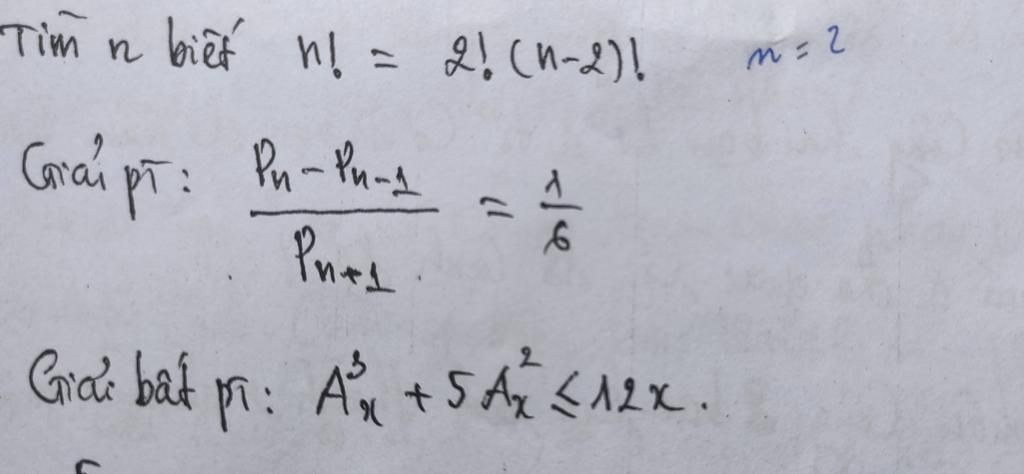 Tìm n biết n! = 2! (n-2)! n = 2
Giải pt: (Pn - Pn-1) / Pn+1 = 1/6
Giải bất pt: A³x + 5A²x ≤ 12x.